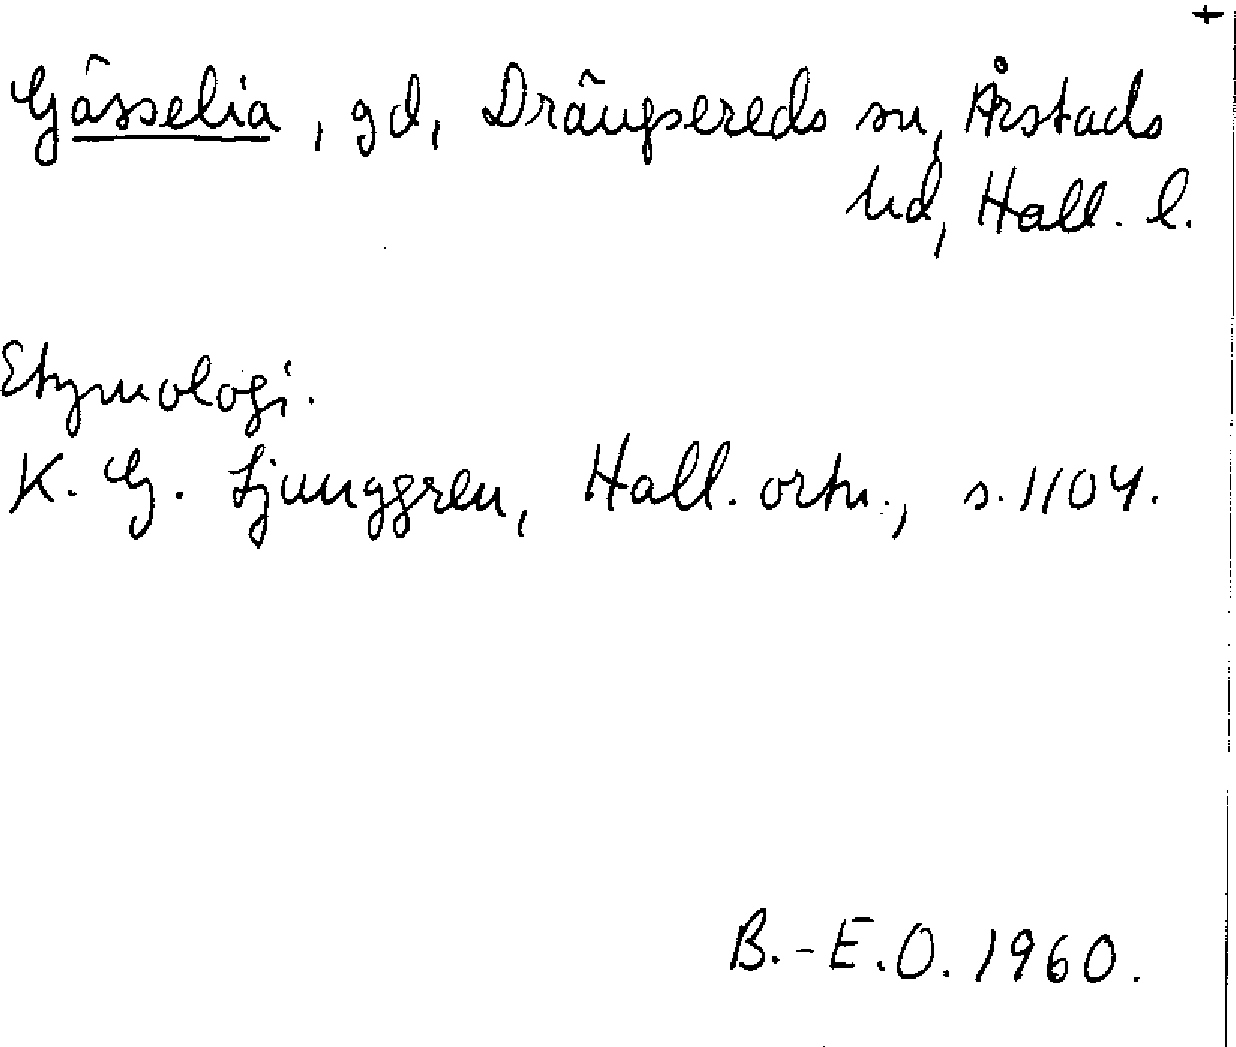 +
Gässelia, gd, Drängsereds sn, Årstads
hd, Hall. l.
Etymologi.
K. G. Ljunggren, Hall. ortn., s. 1104.
B.-E.O. 1960.